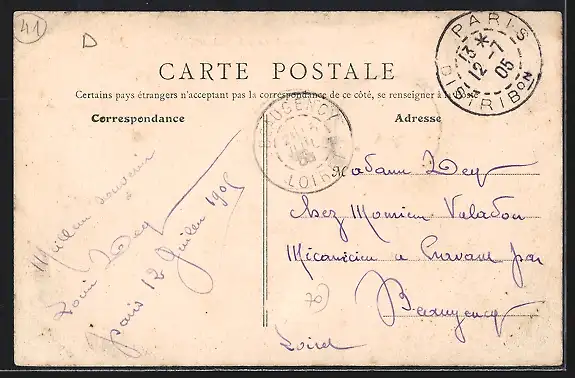 41
D
CARTE POSTALE
Certains pays étrangers n'acceptant pas la correspondance de ce côté, se renseigner à la Poste
Correspondance
Adresse
PARIS
13 * 12 -7 05
DISTRIBON
BEAUGENCY
LOIRET
Meilleur souvenir
Dey
paris 12 Juillet 1905
Madame Dey
Chez Monsieur Valadon
Mécanicien a Cravant par
Beaugency
Loiret